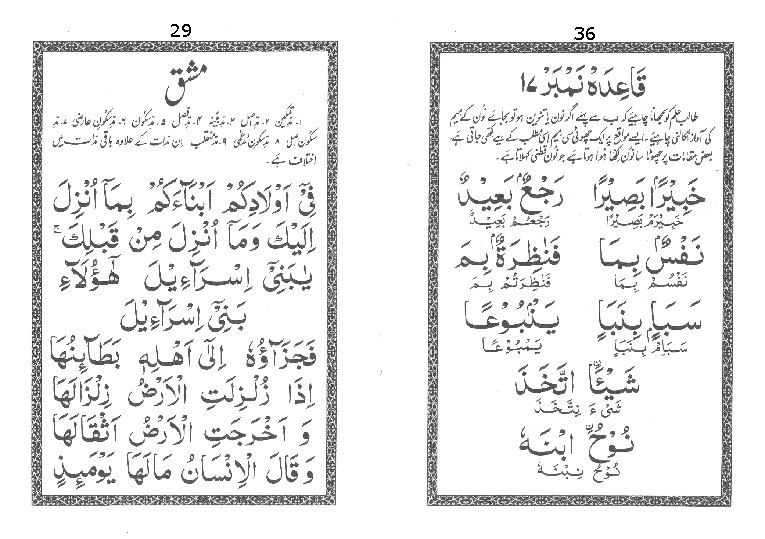 29
مشق
۱۔ مدّ تمکین ۲۔ مدّ بدل ۳۔ ۴۔ مدّ منفصل ۵۔ مدّ سکون ۶۔ مدّ سکون عارضی ۷۔ مدّ
سکون اصلی ۸۔ مدّ سکون لفظی ۹۔ مدّ منقلب اِن مدّات کے علاوہ باقی مدّات میں
اختلاف ہے۔
فِیْۤ اَوْلَادِکُمْ اَبْنَآءَکُمْ بِمَاۤ اُنْزِلَ
اِلَیْكَ وَمَاۤ اُنْزِلَ مِنْ قَبْلِكَ ۚ
یٰبَنِیْۤ اِسْرَآءِیْلَ هٰۤؤُلَآءِ
بَنِیْۤ اِسْرَآءِیْلَ
فَجَزَآؤُهٗ اِلٰۤی اَهْلِهٖ بَطَآئِنُهَا
اِذَا زُلْزِلَتِ الْاَرْضُ زِلْزَالَهَا
وَ اَخْرَجَتِ الْاَرْضُ اَثْقَالَهَا
وَ قَالَ الْاِنْسَانُ مَالَهَا یَوْمَئِذٍ
36
قاعدہ نمبر ۱۷
طالب علم کو سمجھانا چاہیئے کہ ب سے پہلے اگر نون یا تنوین ہو تو بجائے نون کے میم
کی آواز نکالنی چاہیئے۔ ایسے مواقع پر ایک چھوٹی سی میم اِسی مطلب کے لیے لکھی جاتی ہے۔
بعض مقامات پر چھوٹا سا نون لکھا ہوا ہوتا ہے جو نون قطنی کہلاتا ہے۔
خَبِیْرًۢا بَصِیْرًا رَجْعٌۢ بَعِیْدٌ
خَبِیْرَمْ بَصِیْرًا رَجْعُمْ بَعِیْدٌ
نَفْسٌۢ بِمَا فَنٰظِرَةٌۢ بِمَ
نَفْسُمْ بِمَا فَنٰظِرَتُمْ بِمَ
سَبَاٍۭ بِنَبَاٍ یَنْۢبُوْعًا
سَبَاِمْ بِنَبَاٍ یَمْبُوْعًا
شَیْئًا ۨاتَّخَذَ
شَیْءَ نِتَّخَذَ
نُوْحُ ۨابْنَهٗ
نُوْحُ نِبْنَهٗ